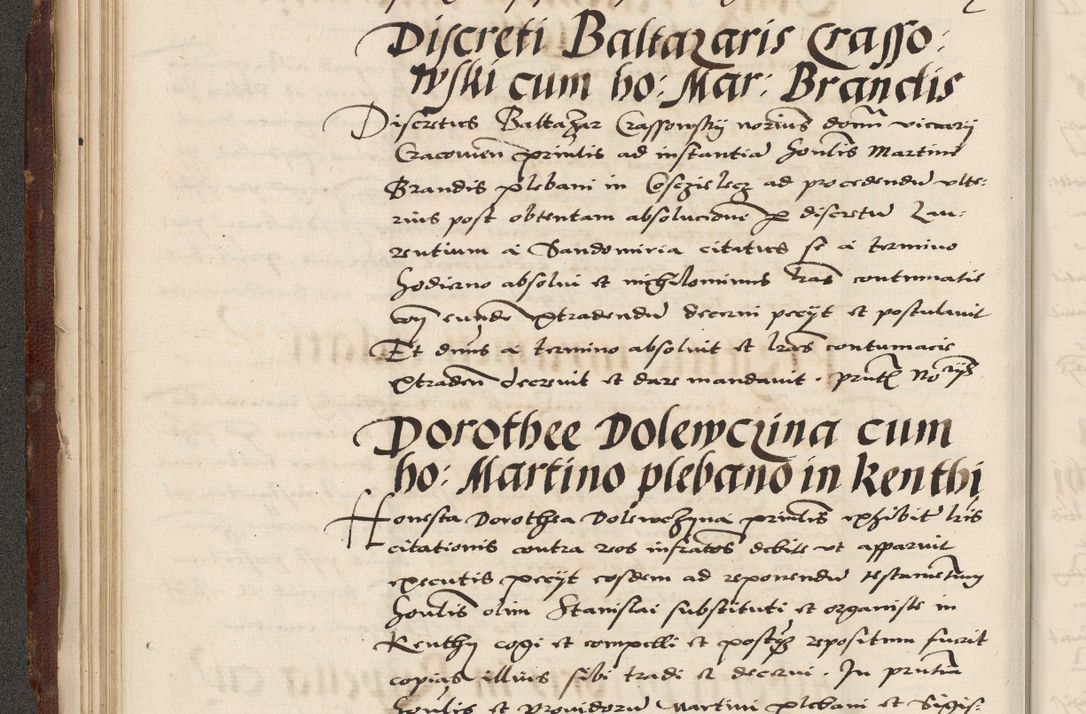 Discreti Baltazaris Crasso:
wski cum ho: Mar: Brandis
Discretus Baltazar Crassowskij notrius domi vicarij
Cracovien prntis ad instantia honlis Martini
Brandis plebani in Cosczielecz ad procedendu ulte:
rius post obtentam absolucione p discretu Lau:
rentium a Sandomiria citatus se a termino
hodierno absolui et nichilominus lras contumatie
con eunde extradendu decerni peciit et postulavit
Et dnus a termino absolvit et lras contumacie
extraden decrevit et dare mandavit. prntib No rijs
Dorothee Dolewczina cum
ho: Martino plebano in Kenthi
Honesta Dorothea Dolewczyna prntis exhibit lris
citationis contra reos infratos debite ut apparuit
executis peciit eosdem ad reponendu testamentum
honlis olim Stanislai substituti et organiste in
Kenthy cogi et compelli et postq repositum fuerit
copias illius sibi tradi et decerni. In prntia
honlis et providoru Martini plebani et Sigis: